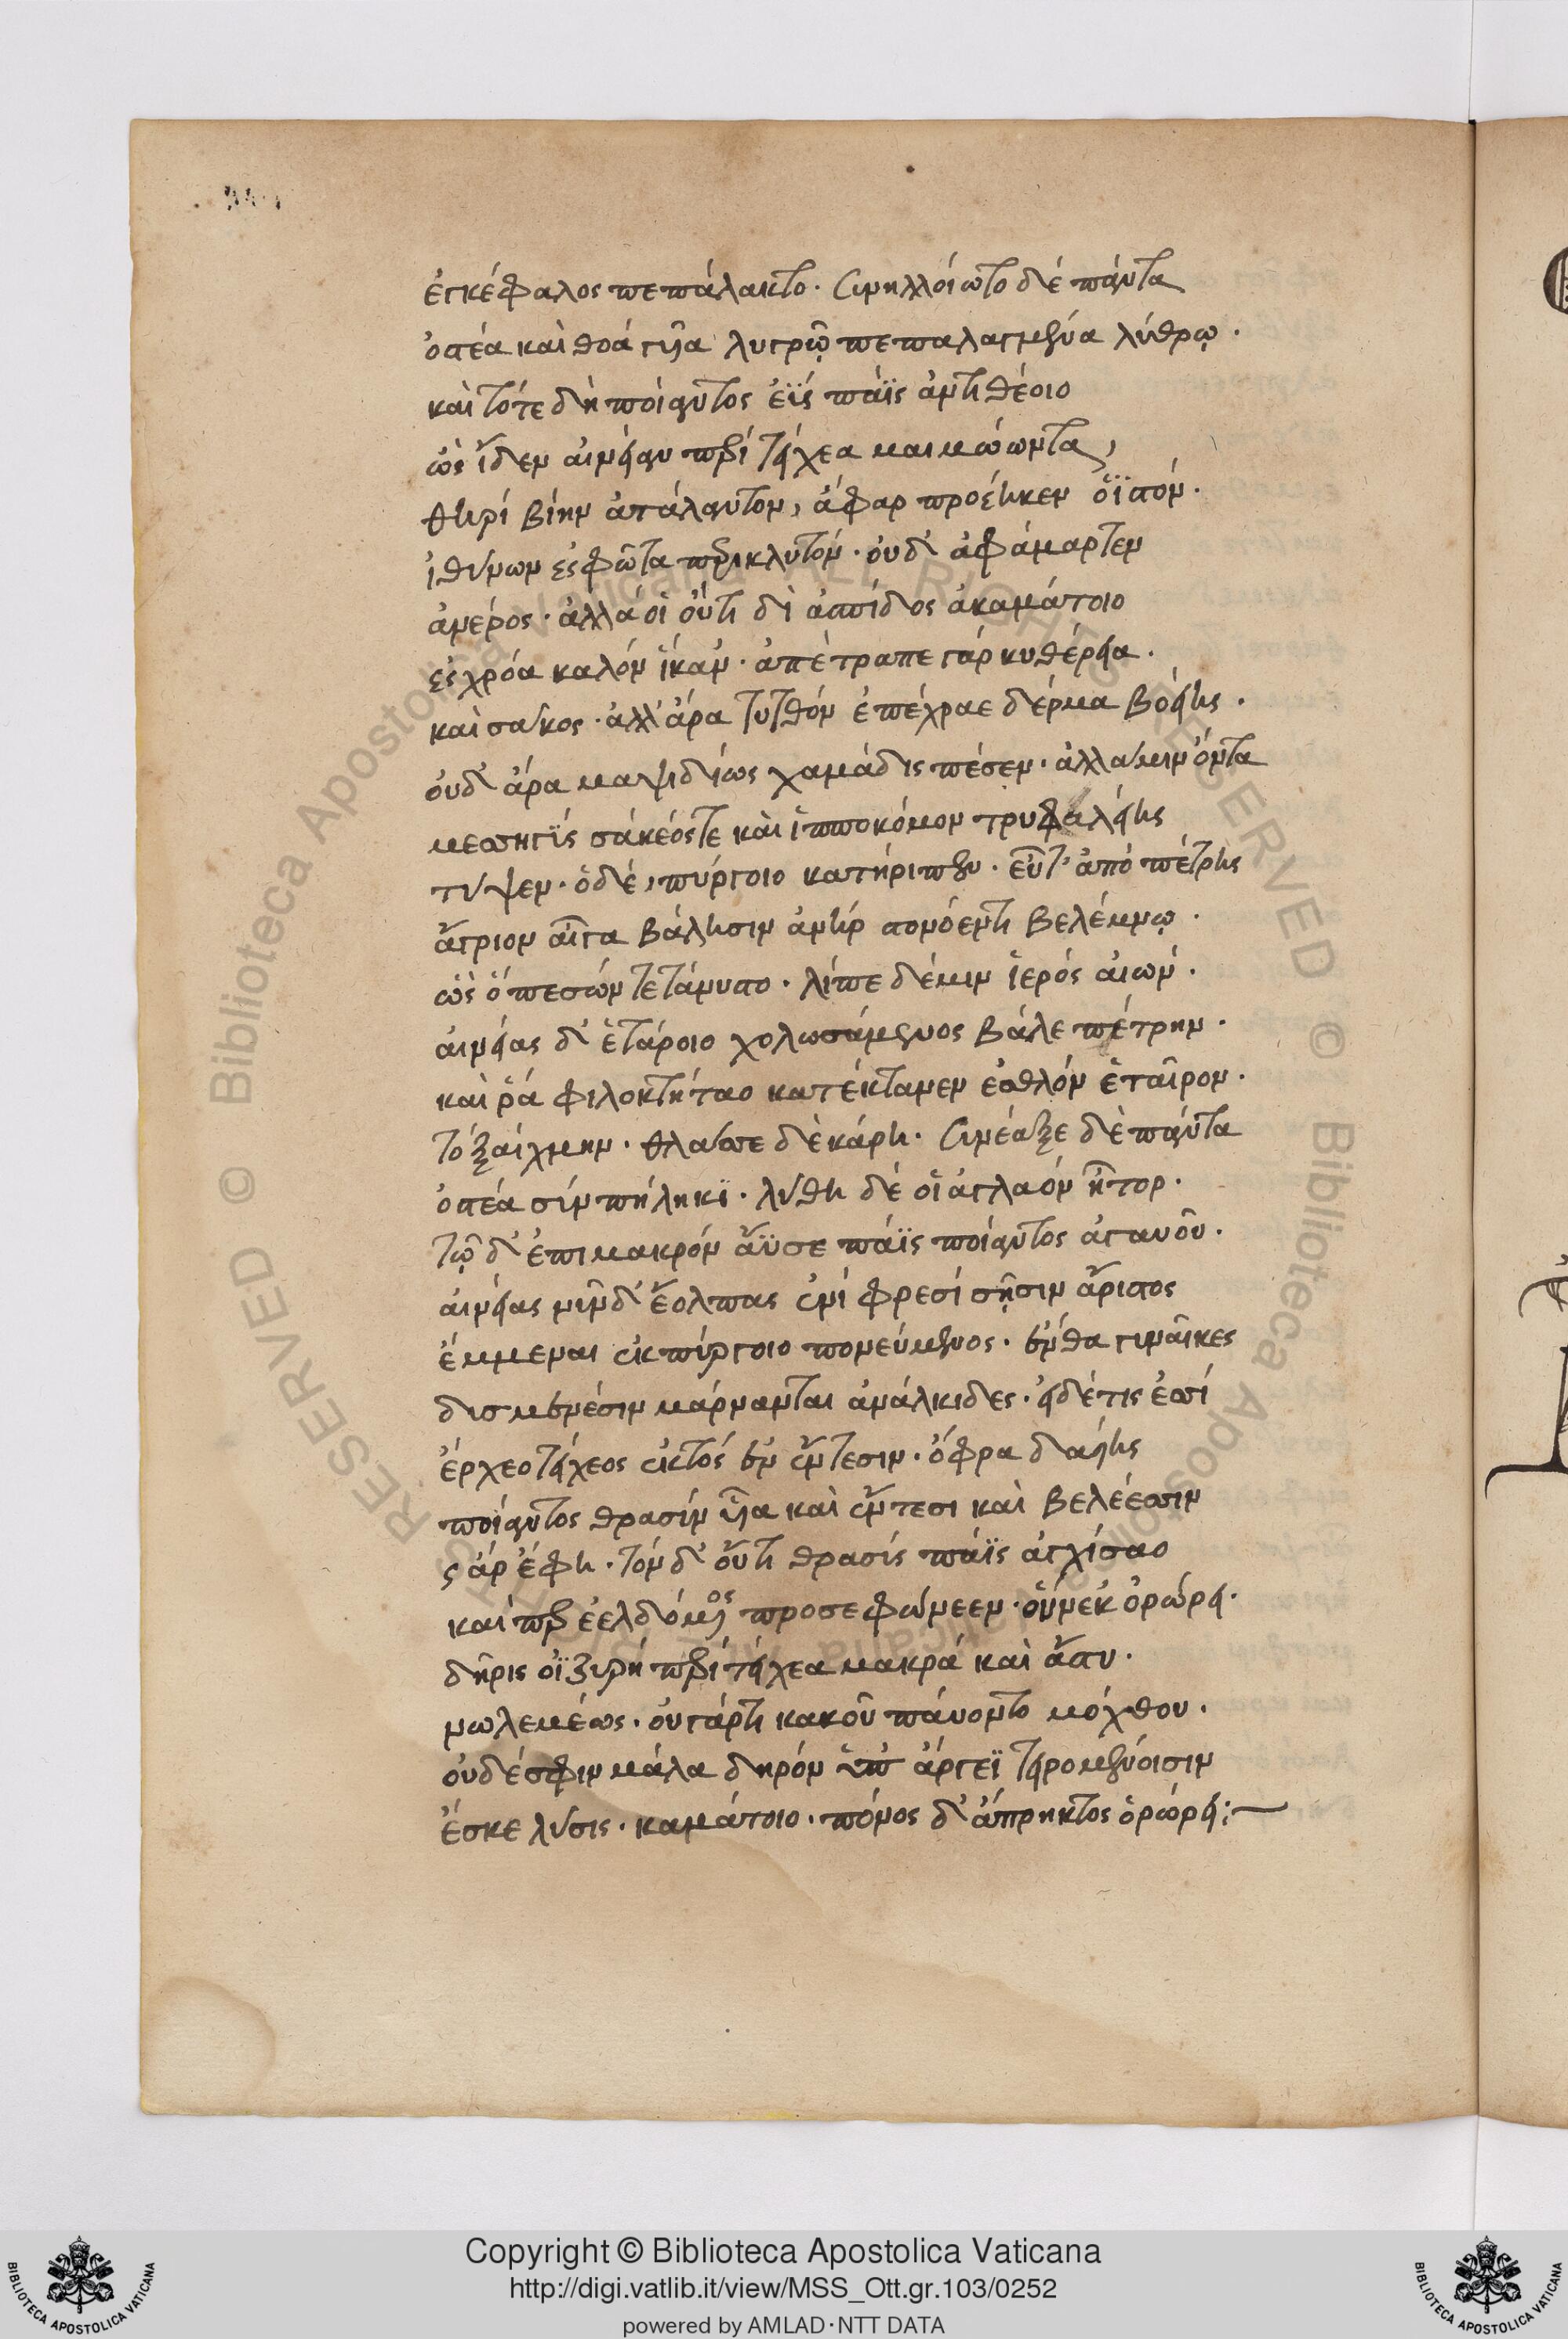 ἐγκέφαλος πεπάλακτο· συνηλλοίωτο δὲ πάντα
ὀστέα καὶ θοὰ γυῖα λυγρῷ πεπαλαγμένα λύθρῳ·
καὶ τότε δὴ ποίαντος ἐῢς πάϊς ἀντιθέοιο
ὡς ἴδεν αἰνείαν περὶ τείχεα μαιμώωντα,
θηρὶ βίην ἀτάλαντον, ἄφαρ προέηκεν ὀϊστόν·
ἰθύνων ἐς φῶτα περικλυτόν· οὐδ' ἀφάμαρτεν
ἀνέρος· ἀλλά οἱ οὔτι δι' ἀσπίδος ἀκαμάτοιο
ἐς χρόα καλὸν ἵκαν· ἀπέτραπε γὰρ κυθέρεια·
καὶ σάκος· ἀλλ' ἄρα τυτθὸν ἐπέχραε δέρμα βοείης·
οὐδ' ἄρα μαψιδίως χαμάδις πέσεν· ἀλλὰ μιν ὄντα
μεσσηγὺς σάκεός τε καὶ ἱπποκόμου τρυφαλείης
τύψεν· ὁ δὲ, πύργοιο κατήριπεν· εὖτ' ἀπὸ πέτρης
ἄγριον αἶγα βάλησιν ἀνὴρ στονόεντι βελέμνῳ·
ὣς ὁ πεσὼν τετάνυστο· λίπε δέ μιν ἱερὸς αἰών·
αἰνείας δ' ἑτάροιο χολωσάμενος βάλε πέτρην·
καί ῥα φιλοκτήταο κατέκτανεν ἐσθλὸν ἑταῖρον·
τοξαίχμην· θλάσσε δὲ κάρη· συνέαξε δὲ πάντα
ὀστέα σὺν πήληκι· λύθη δέ οἱ ἀγλαὸν ἦτορ·
τῷ δ' ἐπὶ μακρὸν ἄϋσε πάϊς ποίαντος ἀγαυοῦ·
αἰνείας νῦν δ' ἔολπας ἐνὶ φρεσὶ σῇσιν ἄριστος
ἔμμεναι ἐκ πύργοιο πονεύμενος· ἔνθα γυναῖκες
δυσμενέσιν μάρνανται ἀνάλκιδες· εἰ δέ τις ἐσσὶ
ἔρχεο τείχεος ἐκτὸς ἐν ἔντεσιν· ὄφρα δαείης
ποίαντος θρασὺν υἷα καὶ ἔντεσι καὶ βελέεσσιν
ς ἄρ' ἔφη· τὸν δ' οὔτι θρασὺς πάϊς ἀγχίσαο
καὶ περ ἐελδόμενος προσεφώνεεν· οὕνεκ' ὀρώρει·
δῆρις ὀϊζυρὴ περὶ τείχεα μακρὰ καὶ ἄστυ·
νωλεμέως· οὐ γάρ τι κακοῦ παύοντο μόχθου·
οὐδέ σφιν μάλα δηρὸν ὑπ' ἄρτεϊ τειρομένοισιν
ἔσκε λύσις· καμάτοιο· πόνος δ' ἄπρηκτος ὀρώρει:~
Copyright © Biblioteca Apostolica Vaticana
http://digi.vatlib.it/view/MSS_Ott.gr.103/0252
powered by AMLAD·NTT DATA